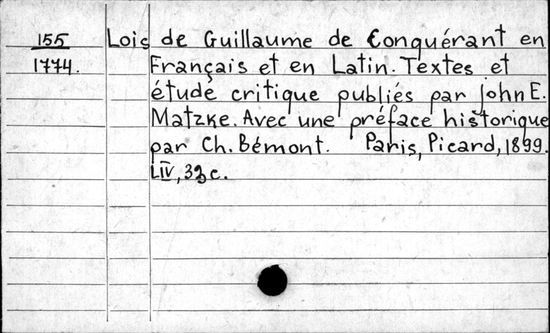 155 Lois de Guillaume de Conquérant en
1774. Français et en Latin. Textes et
étude critique publiés par John E.
Matzke. Avec une préface historique
par Ch. Bémont. Paris, Picard, 1899.
LIV, 32 c.